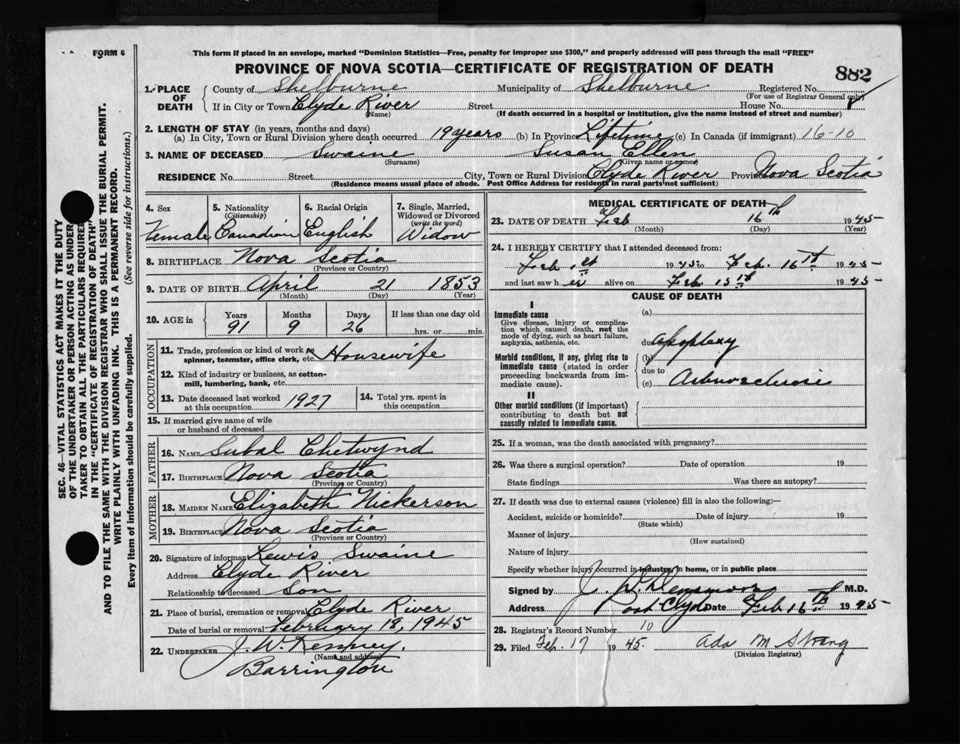 FORM 6
This form if placed in an envelope, marked "Dominion Statistics—Free, penalty for improper use $300," and properly addressed will pass through the mail "FREE"
PROVINCE OF NOVA SCOTIA—CERTIFICATE OF REGISTRATION OF DEATH
882
1. PLACE OF DEATH
County of Shelburne Municipality of Shelburne Registered No.
(For use of Registrar General only)
If in City or Town Clyde River Street House No.
(Name) (If death occurred in a hospital or institution, give the name instead of street and number)
2. LENGTH OF STAY (in years, months and days)
(a) In City, Town or Rural Division where death occurred 19 years (b) In Province Lifetime (c) In Canada (if immigrant) 16-10
3. NAME OF DECEASED Swaine Susan Ellen
(Surname) (Given name or names)
RESIDENCE No. Street City, Town or Rural Division Clyde River Province Nova Scotia
(Residence means usual place of abode. Post Office Address for residents in rural parts not sufficient)
4. Sex Female
5. Nationality (Citizenship) Canadian
6. Racial Origin English
7. Single, Married, Widowed or Divorced (write the word) Widow
8. BIRTHPLACE Nova Scotia
(Province or Country)
9. DATE OF BIRTH April 21 1853
(Month) (Day) (Year)
10. AGE in Years Months Days If less than one day old
91 9 26 hrs. or min.
OCCUPATION
11. Trade, profession or kind of work as spinner, teamster, office clerk, etc. Housewife
12. Kind of industry or business, as cotton-mill, lumbering, bank, etc.
13. Date deceased last worked at this occupation 1927
14. Total yrs. spent in this occupation
15. If married give name of wife or husband of deceased
FATHER
16. NAME Chetwynd
17. BIRTHPLACE Nova Scotia
(Province or Country)
MOTHER
18. MAIDEN NAME Elizabeth Nickerson
19. BIRTHPLACE Nova Scotia
(Province or Country)
20. Signature of informant Lewis Swaine
Address Clyde River
Relationship to deceased Son
21. Place of burial, cremation or removal Clyde River
Date of burial or removal February 18, 1945
22. UNDERTAKER J. W. Kenney.
(Name and address)
Barrington
MEDICAL CERTIFICATE OF DEATH
23. DATE OF DEATH Feb 16th 1945
(Month) (Day) (Year)
24. I HEREBY CERTIFY that I attended deceased from:
Feb 1st 1945 to Feb. 16th 1945
and last saw her alive on Feb 15th 1945
CAUSE OF DEATH
I
Immediate cause
Give disease, injury or complication which caused death, not the mode of dying, such as heart failure, asphyxia, asthenia, etc.
(a)
due to Apoplexy
Morbid conditions, if any, giving rise to immediate cause (stated in order proceeding backwards from immediate cause).
(b)
due to
(c)
II
Other morbid conditions (if important) contributing to death but not causally related to immediate cause.
25. If a woman, was the death associated with pregnancy?
26. Was there a surgical operation? Date of operation 19
State findings Was there an autopsy?
27. If death was due to external causes (violence) fill in also the following:—
Accident, suicide or homicide? Date of injury 19
(State which)
Manner of injury
(How sustained)
Nature of injury
Specify whether injury occurred in industry, in home, or in public place
Signed by M.D.
Address Port Clyde Date Feb 16th 1945
28. Registrar's Record Number 10
29. Filed Feb. 17 1945. Ada M Strang
(Division Registrar)
SEC. 46—VITAL STATISTICS ACT MAKES IT THE DUTY
OF THE UNDERTAKER OR PERSON ACTING AS UNDER-
TAKER TO OBTAIN ALL THE PARTICULARS REQUIRED
IN THE "CERTIFICATE OF REGISTRATION OF DEATH"
AND TO FILE THE SAME WITH THE DIVISION REGISTRAR WHO SHALL ISSUE THE BURIAL PERMIT.
WRITE PLAINLY WITH UNFADING INK. THIS IS A PERMANENT RECORD.
Every item of information should be carefully supplied. (See reverse side for instructions.)